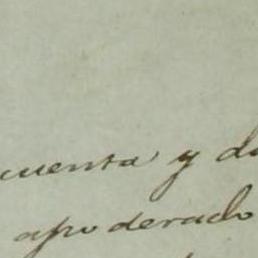 cuenta y d
apoderado